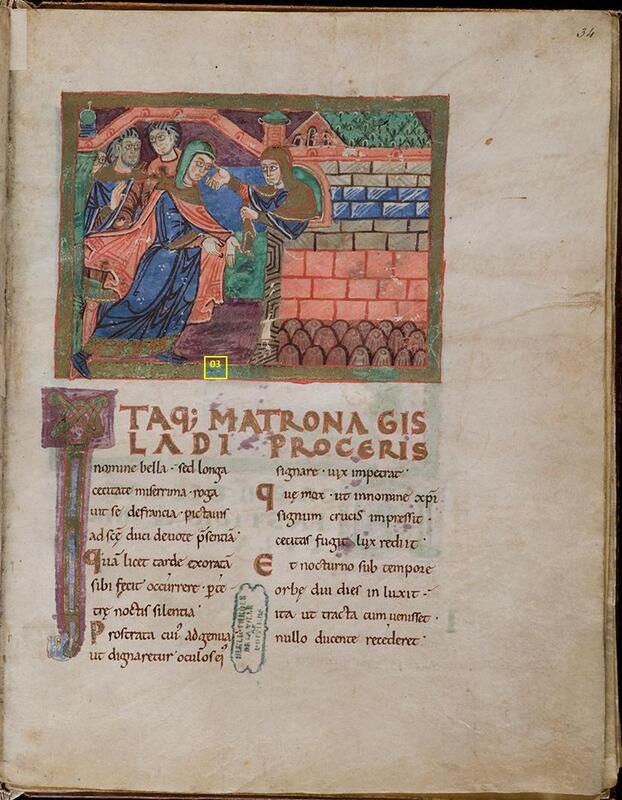 34
03
ITAQ; MATRONA GIS
LADI PROCERIS
nomine bella · sed longa
cecitate miserrima · roga
uit se defrancia · pictauis
ad scē duci deuote p̄sentia ·
quā licet tarde exoratā
sibi fecit occurrere · p̄ce
noctis silentia ·
Prostrata cui' ad genua
ut dignaretur oculos ei'
signare · uix impetrat ·
que mox · ut innomine xp̄i
signum crucis impressit ·
cecitas fugit · lux rediit ·
Et nocturno sub tempore
orbę diu dies in luxit ·
ita ut tracta cum uenisset ·
nullo ducente recederet ·
BIBLIOTHEQUE
DE LA VILLE
DE
POITIERS